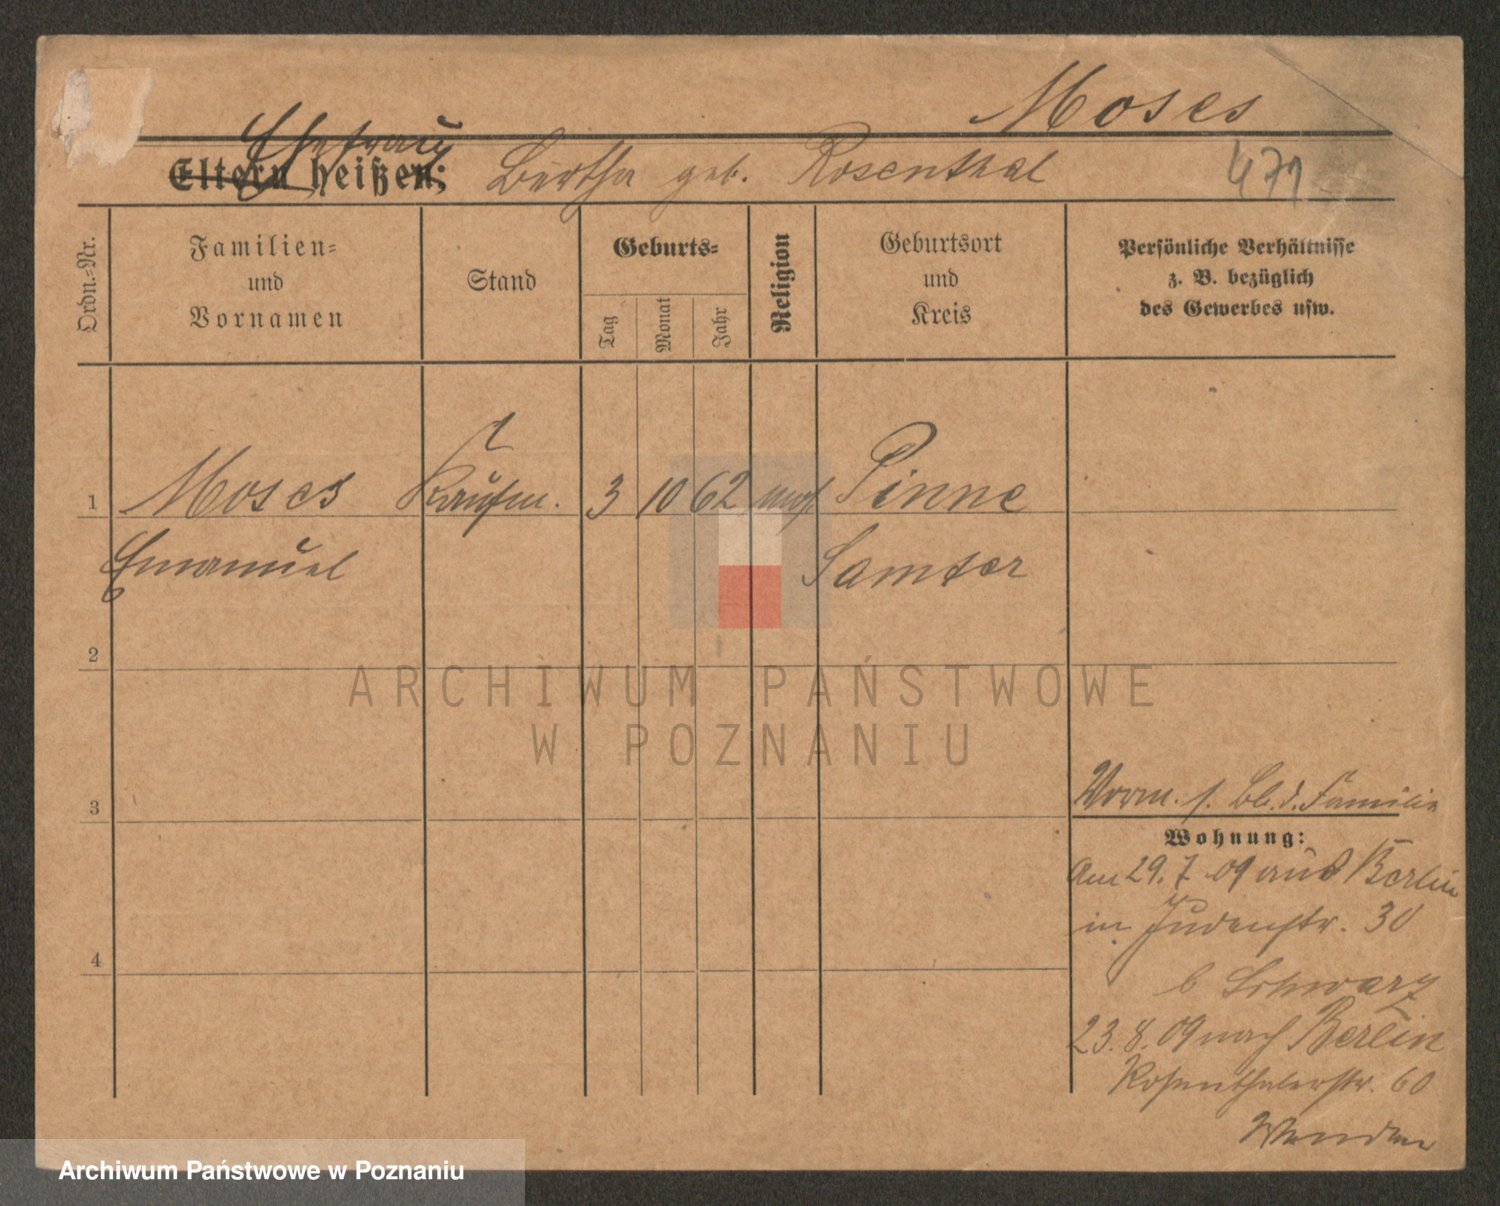 Moses
Ehefrau
Eltern heißen: Bertha geb. Rosenthal 471
Ordn.=Nr.
Familien=
und
Vornamen
Stand
Geburts=
Tag
Monat
Jahr
Religion
Geburtsort
und
Kreis
Persönliche Verhältnisse
z. B. bezüglich
des Gewerbes usw.
1 Moses Kaufm. 3 10 62 mos. Pinne
Emanuel Samter
2
3
4
Vorm. s. Bl. d. Familie
Wohnung:
Am 29.7.09 aus Berlin
in Judenstr. 30
b Schwarz
23.8.09 nach Berlin
Rosenthalerstr. 60
ARCHIWUM PAŃSTWOWE
W POZNANIU
Archiwum Państwowe w Poznaniu